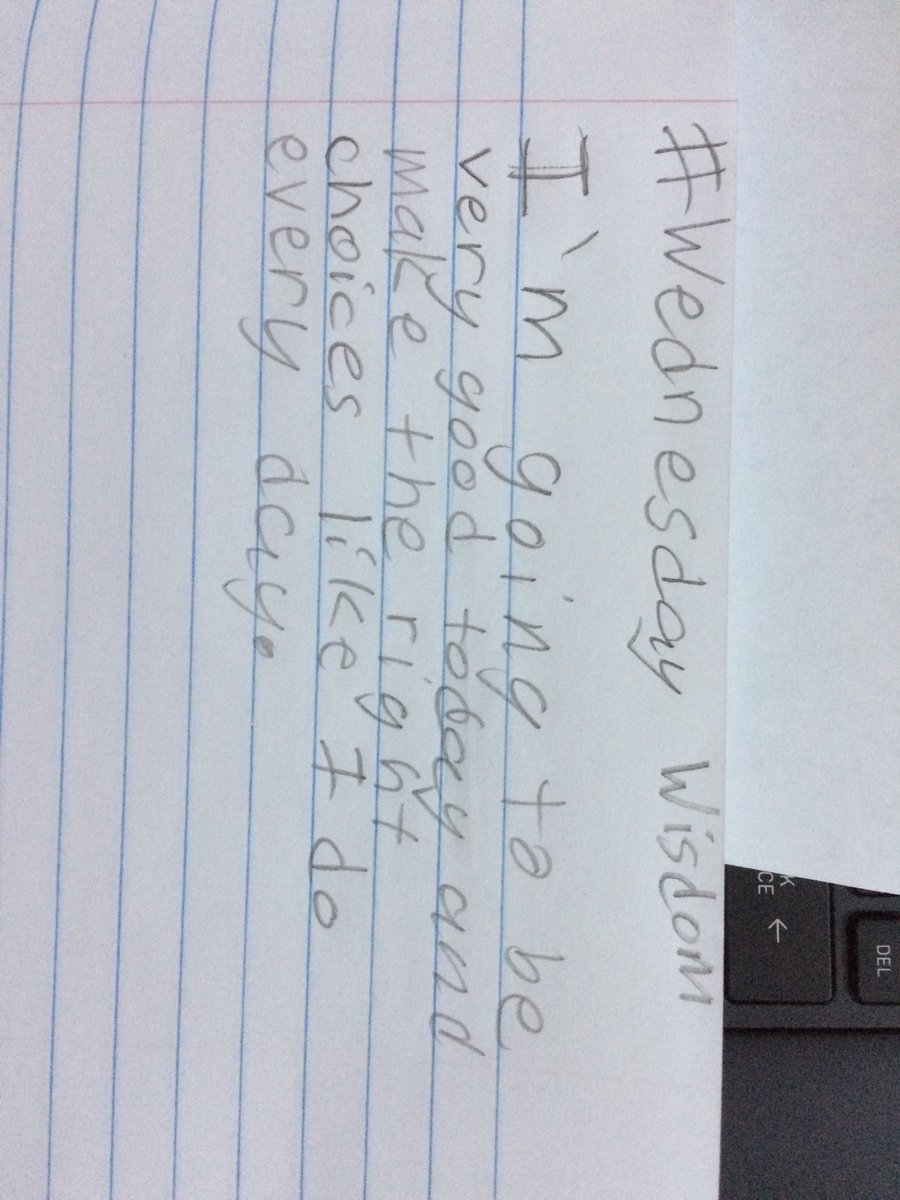 #Wednesday Wisdom
I'm going to be
very good today and
make the right
choices like I do
every day.
CE ←
DEL